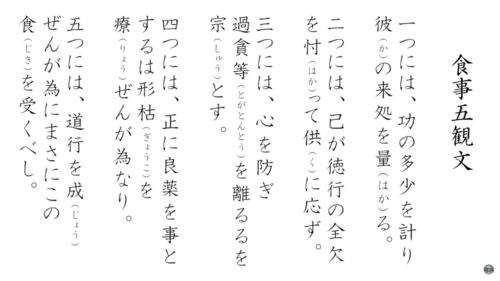 食事五観文
一つには、功の多少を計り
彼(か)の来処を量(はか)る。
二つには、己が徳行の全欠
を忖(はか)って供(く)に応ず。
三つには、心を防ぎ
過貪等(とがとんとう)を離るるを
宗(しゅう)とす。
四つには、正に良薬を事と
するは形枯(ぎょうこ)を
療(りょう)ぜんが為なり。
五つには、道行を成(じょう)
ぜんが為にまさにこの
食(じき)を受くべし。